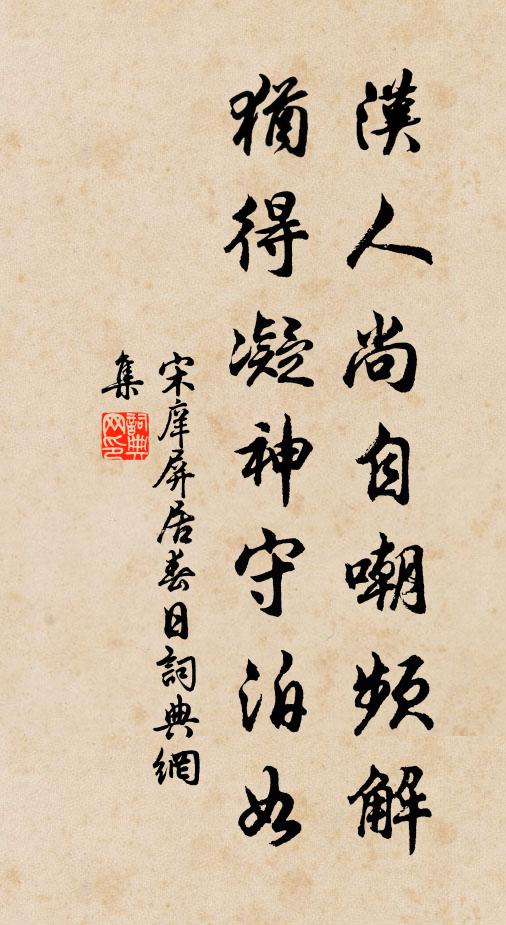 漢人尚自嘲頻解
猶得凝神守泊如
宋庠屏居春日詞典網
集
詞典網印